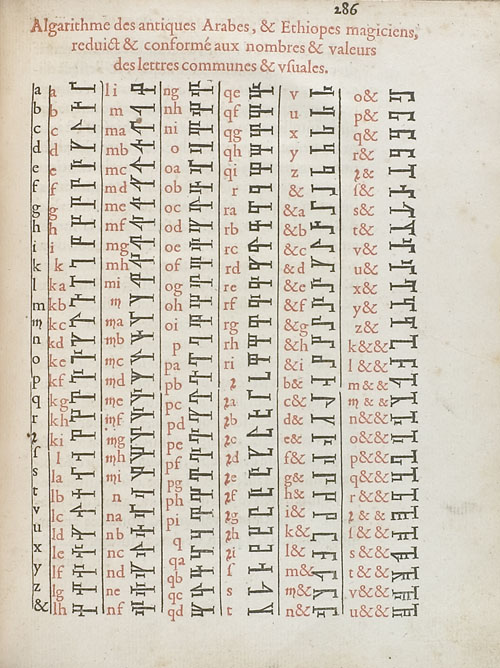 286
Algarithme des antiques Arabes, & Ethiopes magiciens,
reduict & conformé aux nombres & valeurs
des lettres communes & vſuales.
a a
b b
c c
d d
e e
f f
g g
h h
i i
k k
l ka
m kb
ɱ kc
n kd
o ke
p kf
q kg
r kh
ꝛ ki
ſ l
s la
t lb
v lc
u ld
x le
y lf
z lg
& lh
li
m
ma
mb
mc
md
me
mf
mg
mh
mi
ɱ
ɱa
ɱb
ɱc
ɱd
ɱe
ɱf
ɱg
ɱh
ɱi
n
na
nb
nc
nd
ne
nf
ng
nh
ni
o
oa
ob
oc
od
oe
of
og
oh
oi
p
pa
pb
pc
pd
pe
pf
pg
ph
pi
q
qa
qb
qc
qd
qe
qf
qg
qh
qi
r
ra
rb
rc
rd
re
rf
rg
rh
ri
ꝛ
ꝛa
ꝛb
ꝛc
ꝛd
ꝛe
ꝛf
ꝛg
ꝛh
ꝛi
ſ
s
t
v
u
x
y
z
&
&a
&b
&c
&d
&e
&f
&g
&h
&i
b&
c&
d&
e&
f&
g&
h&
i&
k&
l&
m&
ɱ&
n&
o&
p&
q&
r&
ꝛ&
ſ&
s&
t&
v&
u&
x&
y&
z&
k&&
l&&
m&&
ɱ&&
n&&
o&&
p&&
q&&
r&&
ꝛ&&
ſ&&
s&&
t&&
v&&
u&&